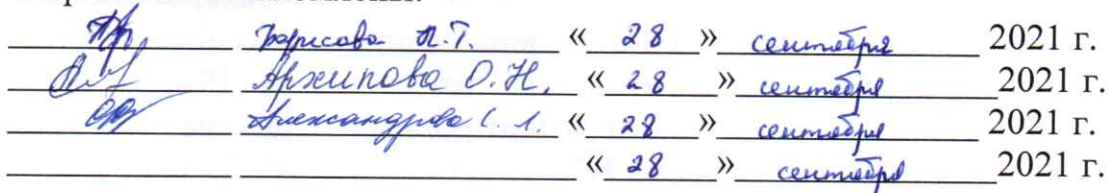 Борисова Л.Т. « 28 » сентября 2021 г.
Архипова О.Н. « 28 » сентября 2021 г.
Александрова С. А. « 28 » сентября 2021 г.
« 28 » сентября 2021 г.